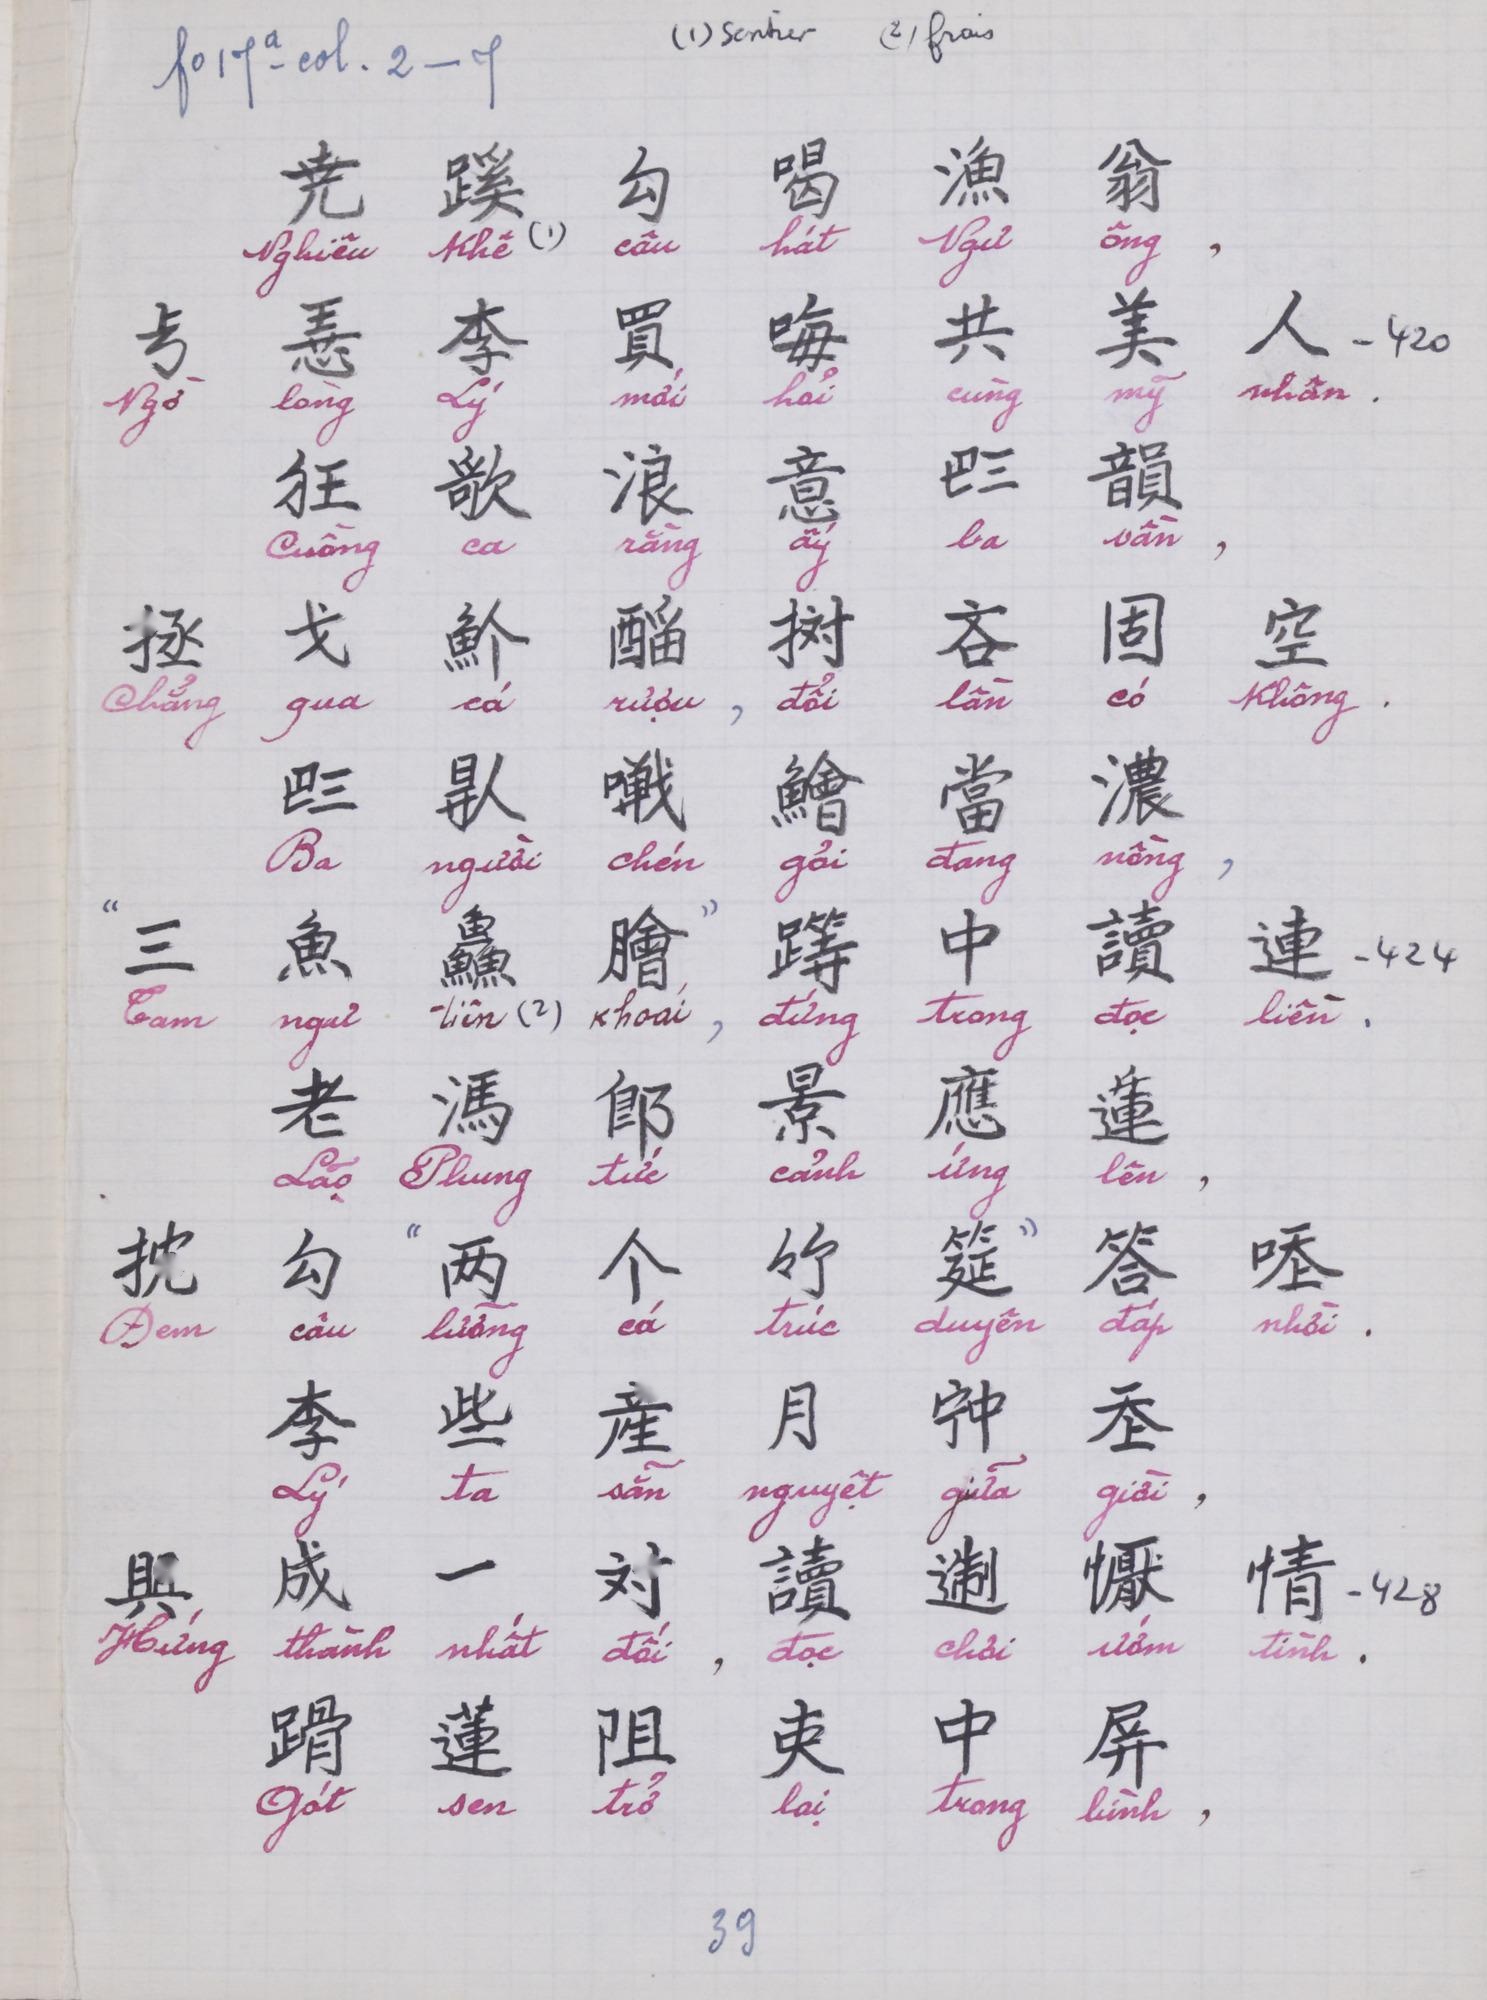 fo 17a - col. 2 — 7
(1) Sentier (2) frais
尭 蹊 勾 喝 漁 翁
Nghiêu Khê (1) câu hát Ngư ông ,
李 買 㖼 共 美 人 - 420
Ngỏ lòng Lý mới hỏi cùng mỹ nhân .
狂 歌 浪 意 𠀧 韻
Cuồng ca rằng ấy ba vần ,
拯 戈 𩵜 𨢇 𢭗 吝 固 空
Chẳng qua cá rượu , đổi lần có không .
𠀧 𠎬 鱠 當 濃
Ba người chén gỏi đang nồng ,
“ 三 魚 鱻 膾 ” 中 讀 連 - 424
Tam ngư tiên (2) khoái , đứng trong đọc liền .
老 馮 郎 景 應 蓮
Lão Phung tức cảnh ứng lên ,
抌 勾 “ 两 个 竹 筵 ” 答 𠳚
Đem câu lưỡng cá trúc duyên đáp nhời .
李 些 産 月 𡨌 𡗶
Lý ta sẵn nguyệt giữa giời ,
興 成 一 対 讀 情 - 428
Hứng thành nhất đối , đọc chơi ướm tình .
蓮 阻 吏 中 屏
Gót sen trở lại trong bình ,
39